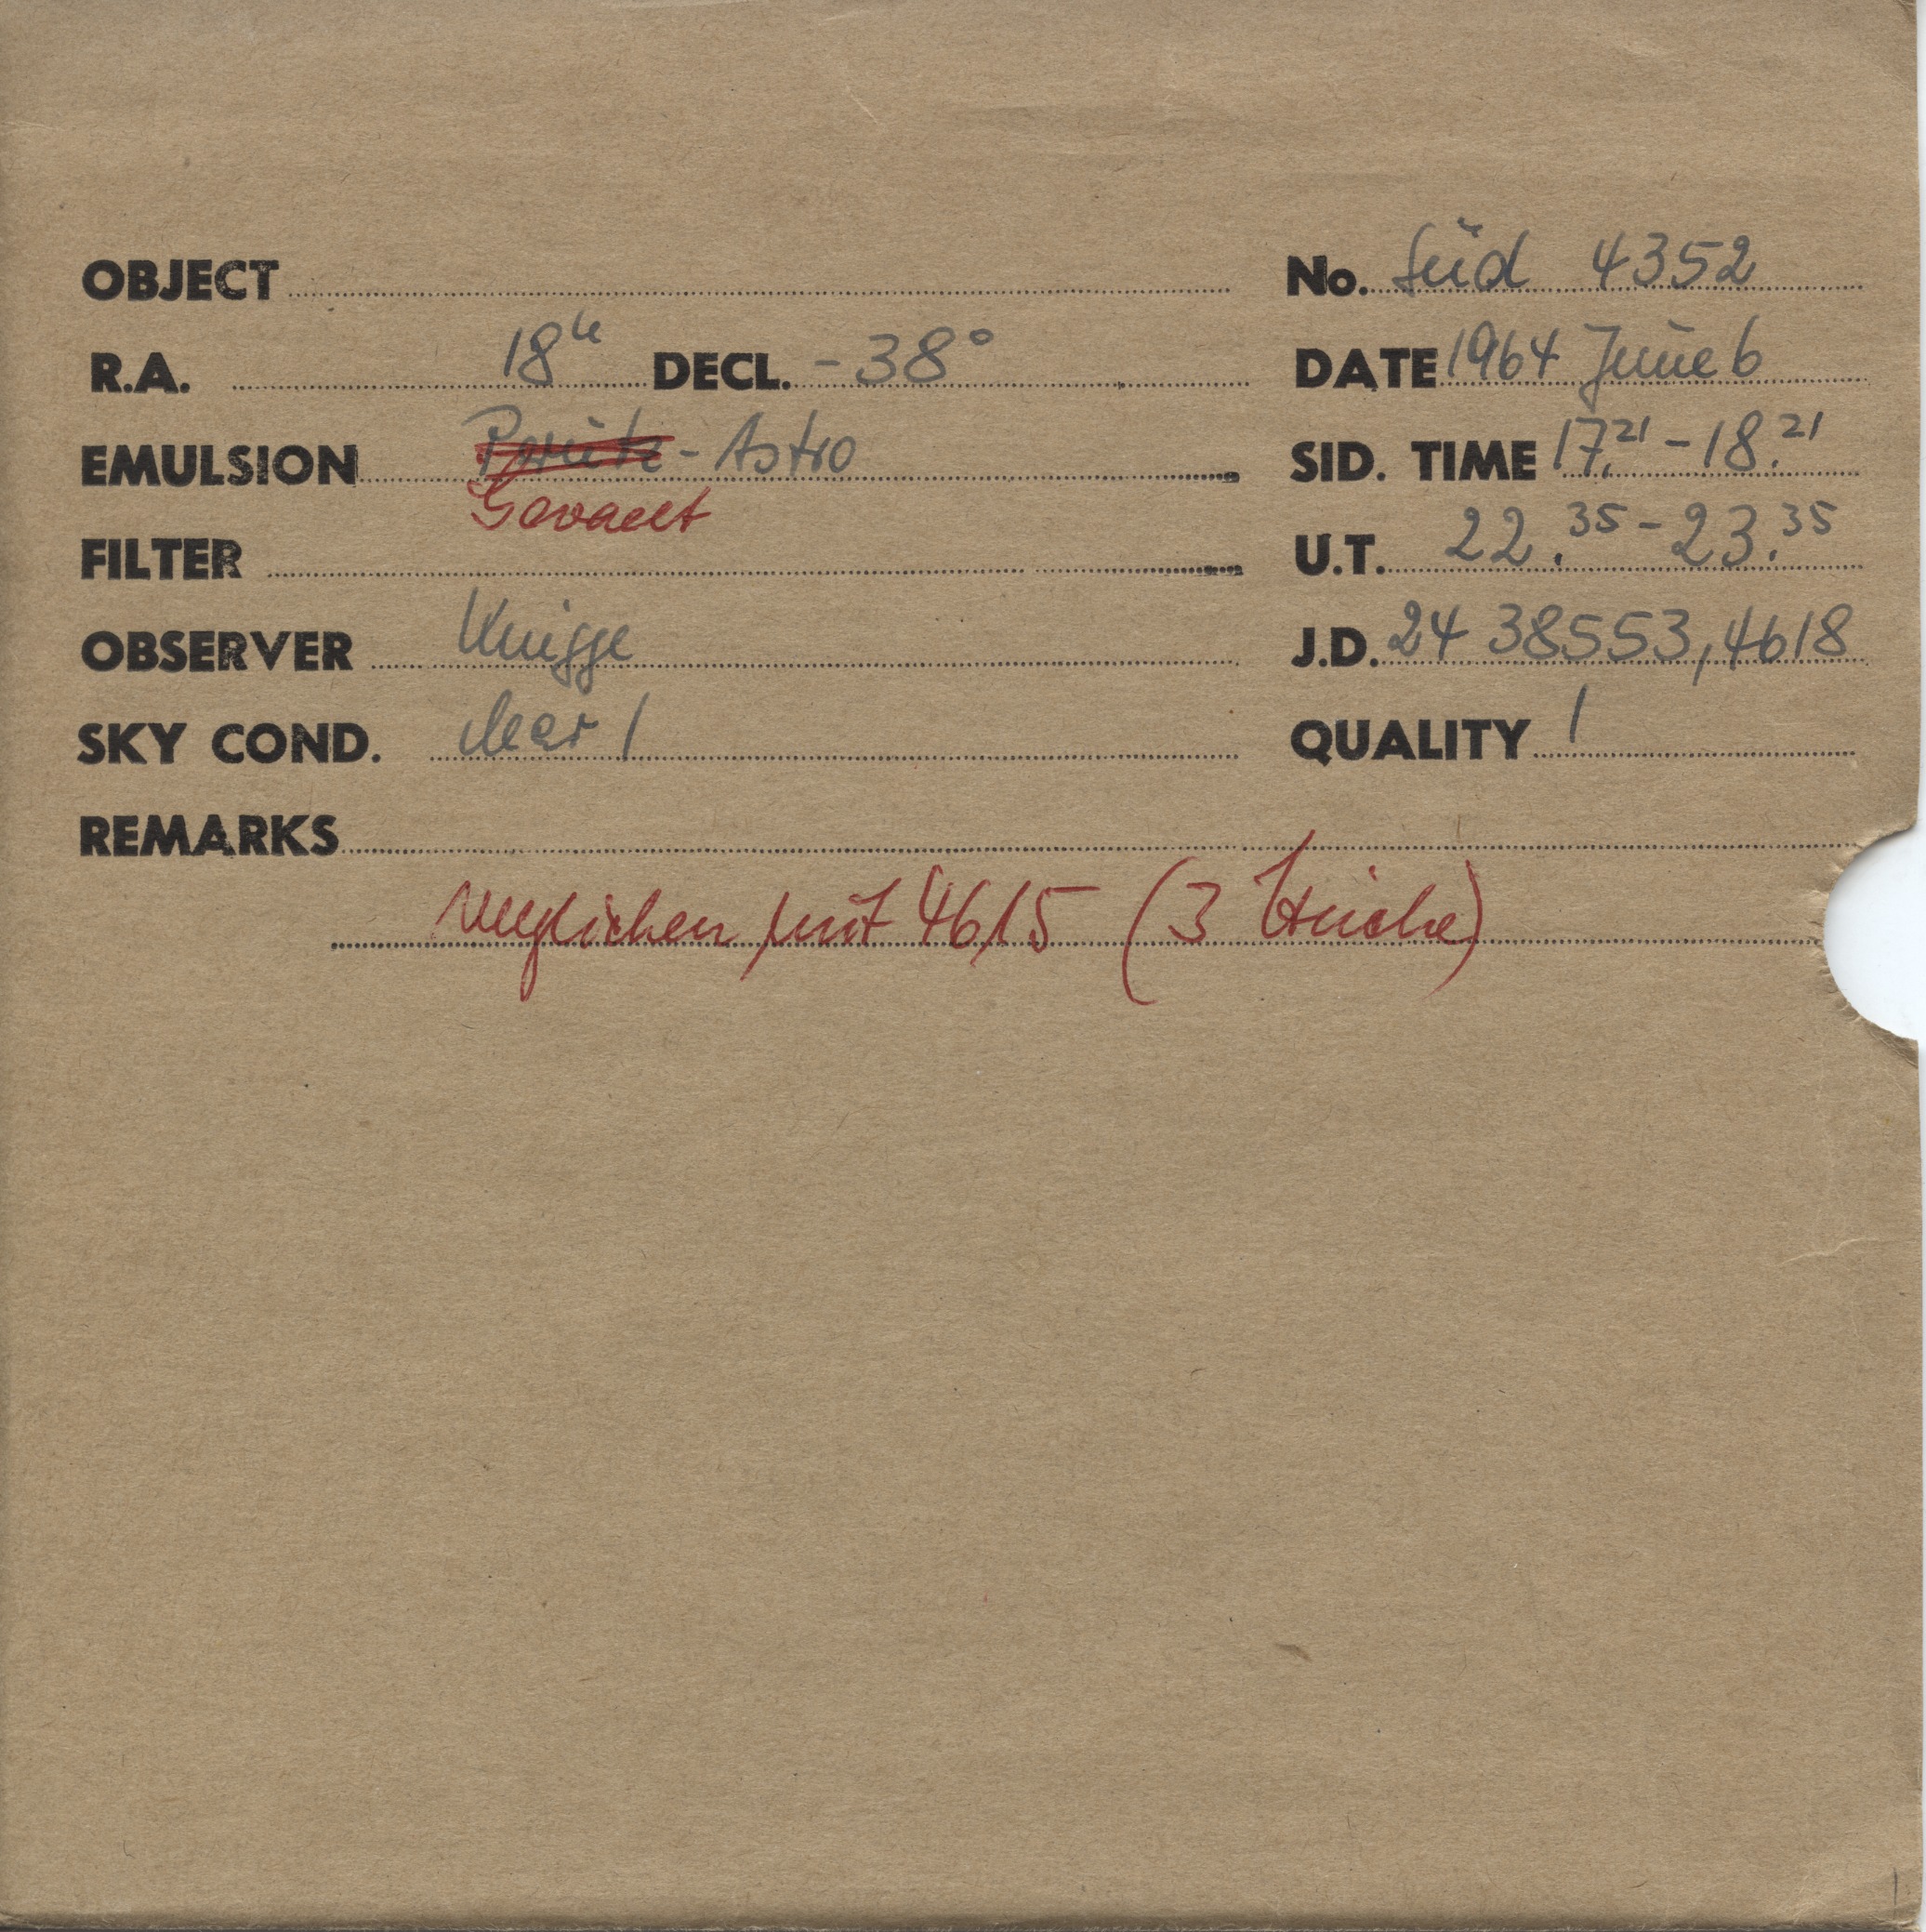 OBJECT No. Süd 4352
R.A. 18h DECL. -38° DATE 1964 June 6
EMULSION Perutz - Astro SID. TIME 17.21 - 18.21
Gevaert
FILTER U.T. 22.35 - 23.35
OBSERVER Knigge J.D. 24 38553,4618
SKY COND. clear 1 QUALITY 1
REMARKS
verglichen mit 4615 (3 Striche)